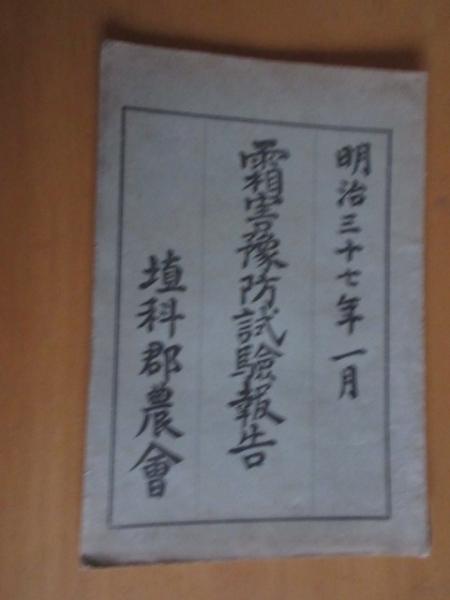 明治三十七年一月
霜害豫防試驗報告
埴科郡農會